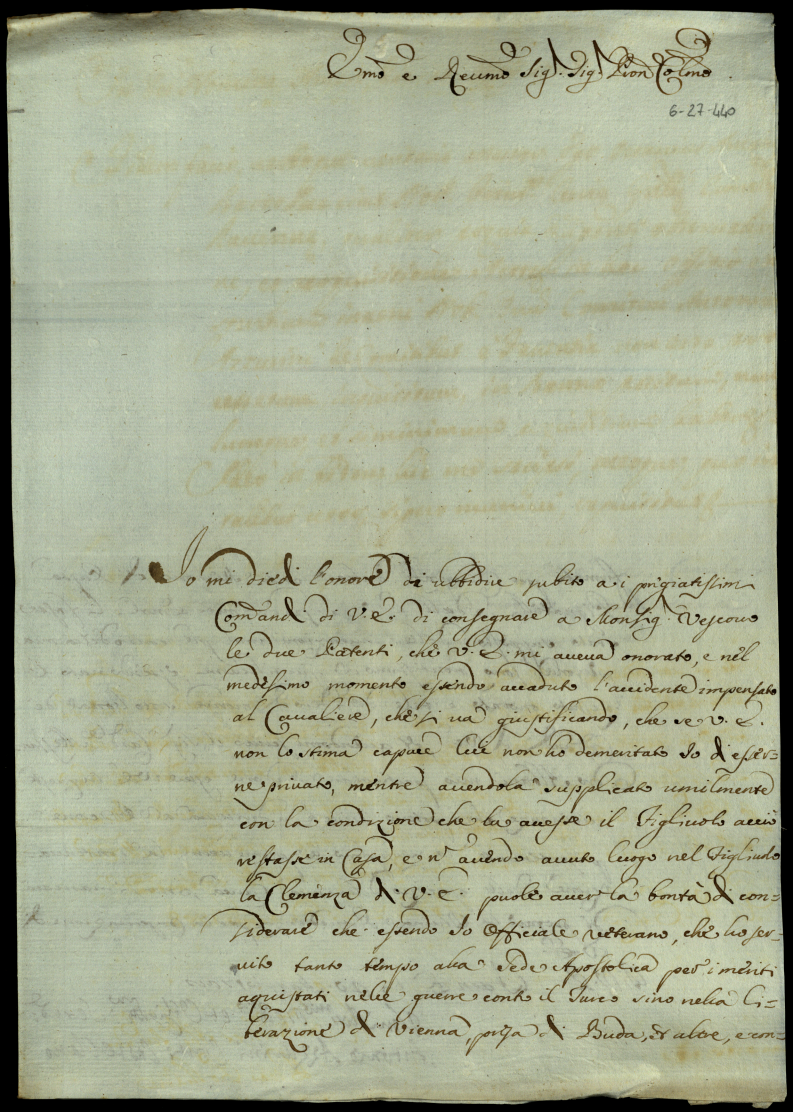 Emo e Reumo Sig. Sig. Pron Colmo
6-27-440
Io mi diedi l'onore di ubbidire subito a i pregiatissimi
Comandi di V. E. di consegnare a Monsig. Vescovo
le due Patenti, che V. E. mi aueua onorato, e nel
medesimo momento essendo accaduto l'accidente impensato
al Caualiere, che si ua giustificando, che se V. E.
non lo stima capace lui non hò demeritato Io di esser-
ne priuato, mentre auendola supplicato umilmente
con la condizione che la auesse il Figliuolo acciò
restasse in Casa, e n auendo auuto luogo nel Figliuolo
la Clemenza di V. E. puole auer la bontà di con-
siderare che essendo Io Officiale ueterano, che ho ser-
uito tanto tempo alla Sede Apostolica per i meriti
aquistati nelle guerre conto il Turco sino nella li-
berazione di Vienna, presa di Buda, et altre, e con-